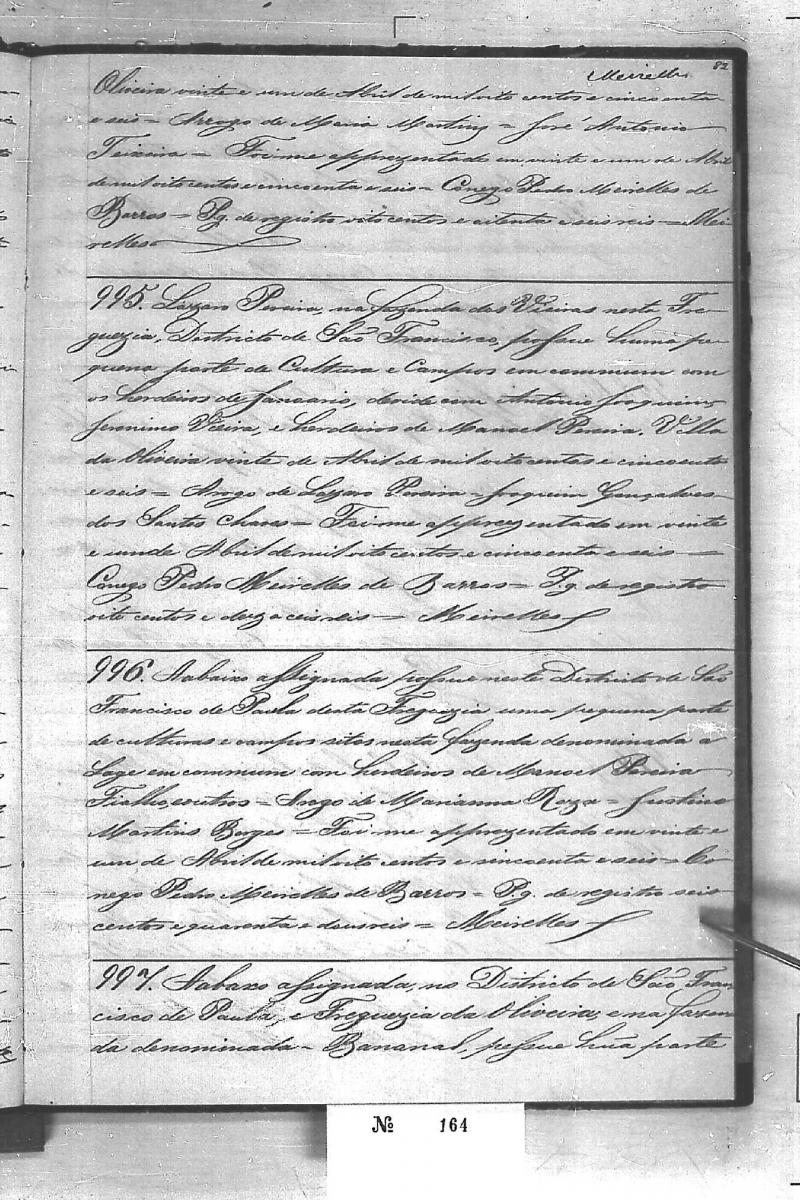 82
Meirelles
Oliveira vinte e um de Abril de mil oito centos e cincoenta
e seis = Arrogo de Maria Martins = José Antonio
Teixeira = Foi-me apprezentado em vinte e um de Abril
de mil oito centos e cincoenta e seis = Conego Pedro Meirelles de
Barros = Pg. de registro oito centos e oitenta e seis reis = Mei-
relles
995. Lazaro Pereira, na fazenda dos Vieiras nesta Fre-
guezia, Districto de São Francisco, possue huma pe-
quena parte de Cultura e Campos em commum com
os herdeiros de Januario, devide com Antonio Joaquim,
Jeronimo Vieira, e herdeiros de Manoel Pereira. Villa
da Oliveira vinte de Abril de mil oito centos e cincoenta
e seis = Arrogo de Lazaro Pereira = Joaquim Gonçalves
dos Santos Chaves = Foi-me apprezentado em vinte
e um de Abril de mil oito centos e cincoenta e seis =
Conego Pedro Meirelles de Barros = Pg. de registro
oito centos e deza ceis reis = Meirelles
996. Aabaixo assignada possue neste Districto de São
Francisco de Paula desta Freguezia uma pequena parte
de culturas e campos sitos nesta fazenda denominada a
Lage em commum com herdeiros de Manoel Pereira
Fialho, e outros = Arrogo de Marianna Roza = Justino
Martins Borges = Foi-me apprezentado em vinte e
um de Abril de mil oito centos e sincoenta e seis = Co-
nego Pedro Meirelles de Barros = Pg. de registro seis
centos e quarenta e dous reis = Meirelles
997. Aabaxo assignada, no Districto de São Fran
cisco de Paula, e Freguezia da Oliveira, e na fazen
da denominada = Bananal, possue hũa parte
№ 164